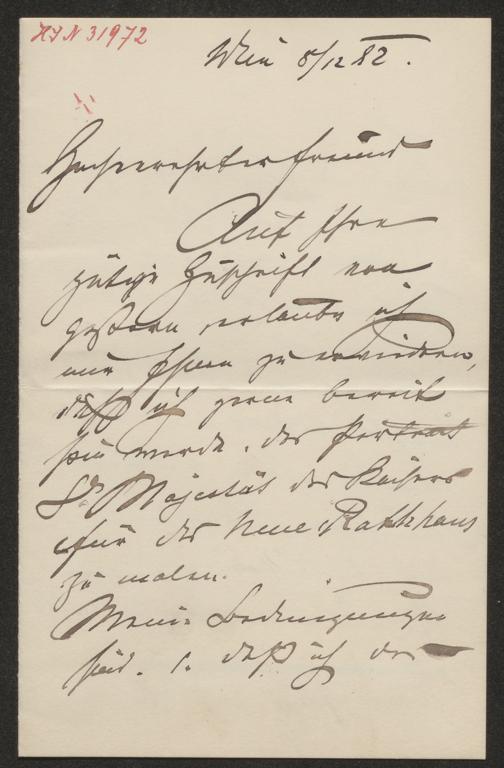 HIN 31972
Wien 8/12 82.
Hochverehrter Freund
Auf Ihre
gütige Zuschrift von
gestern erlaube ich
mir Ihnen zu erwiedern,
daß ich gerne bereit
sein werde, das Portrait
Sr Majestät des Kaisers
für das Neue Rathhaus
zu malen.
Meine Bedingungen
sind. 1. daß ich das